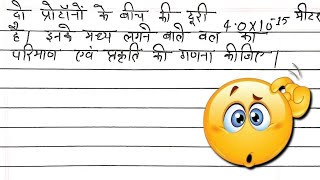 दो प्रोटॉनों के बीच की दूरी 4.0X10⁻¹⁵ मीटर
है। इनके मध्य लगने वाले बल का
परिमाण एवं प्रकृति की गणना कीजिए।